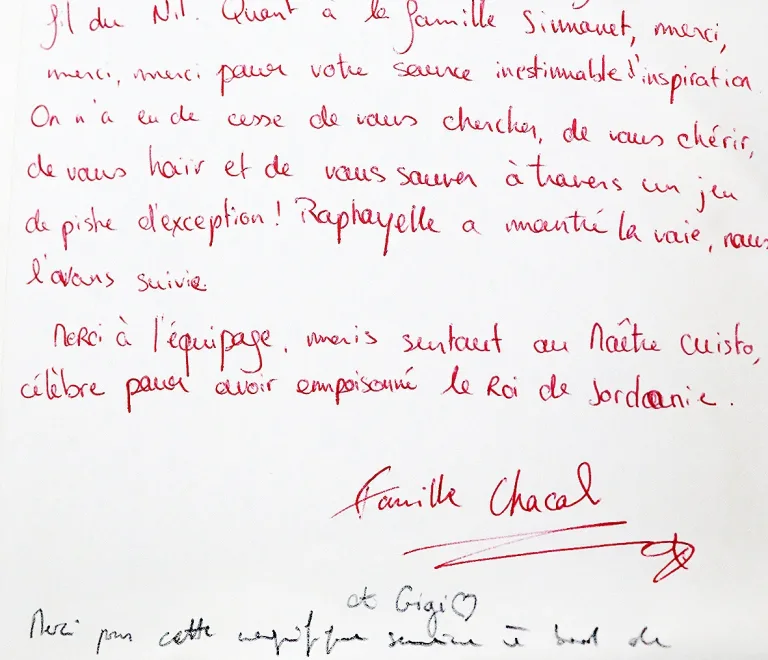 fil du Nil. Quant à la famille Simonet, merci,
merci, merci pour votre source inestimable d'inspiration
On n'a eu de cesse de vous chercher, de vous chérir,
de vous haïr et de vous sauver à travers un jeu
de piste d'exception ! Raphayelle a montré la voie, nous
l'avons suivie.
Merci à l'équipage, mais surtout au Maître Cuisto,
célèbre pour avoir empoisonné le Roi de Jordanie.
Famille Chacal
et Gigi♡
Merci pour cette magnifique semaine à bord de